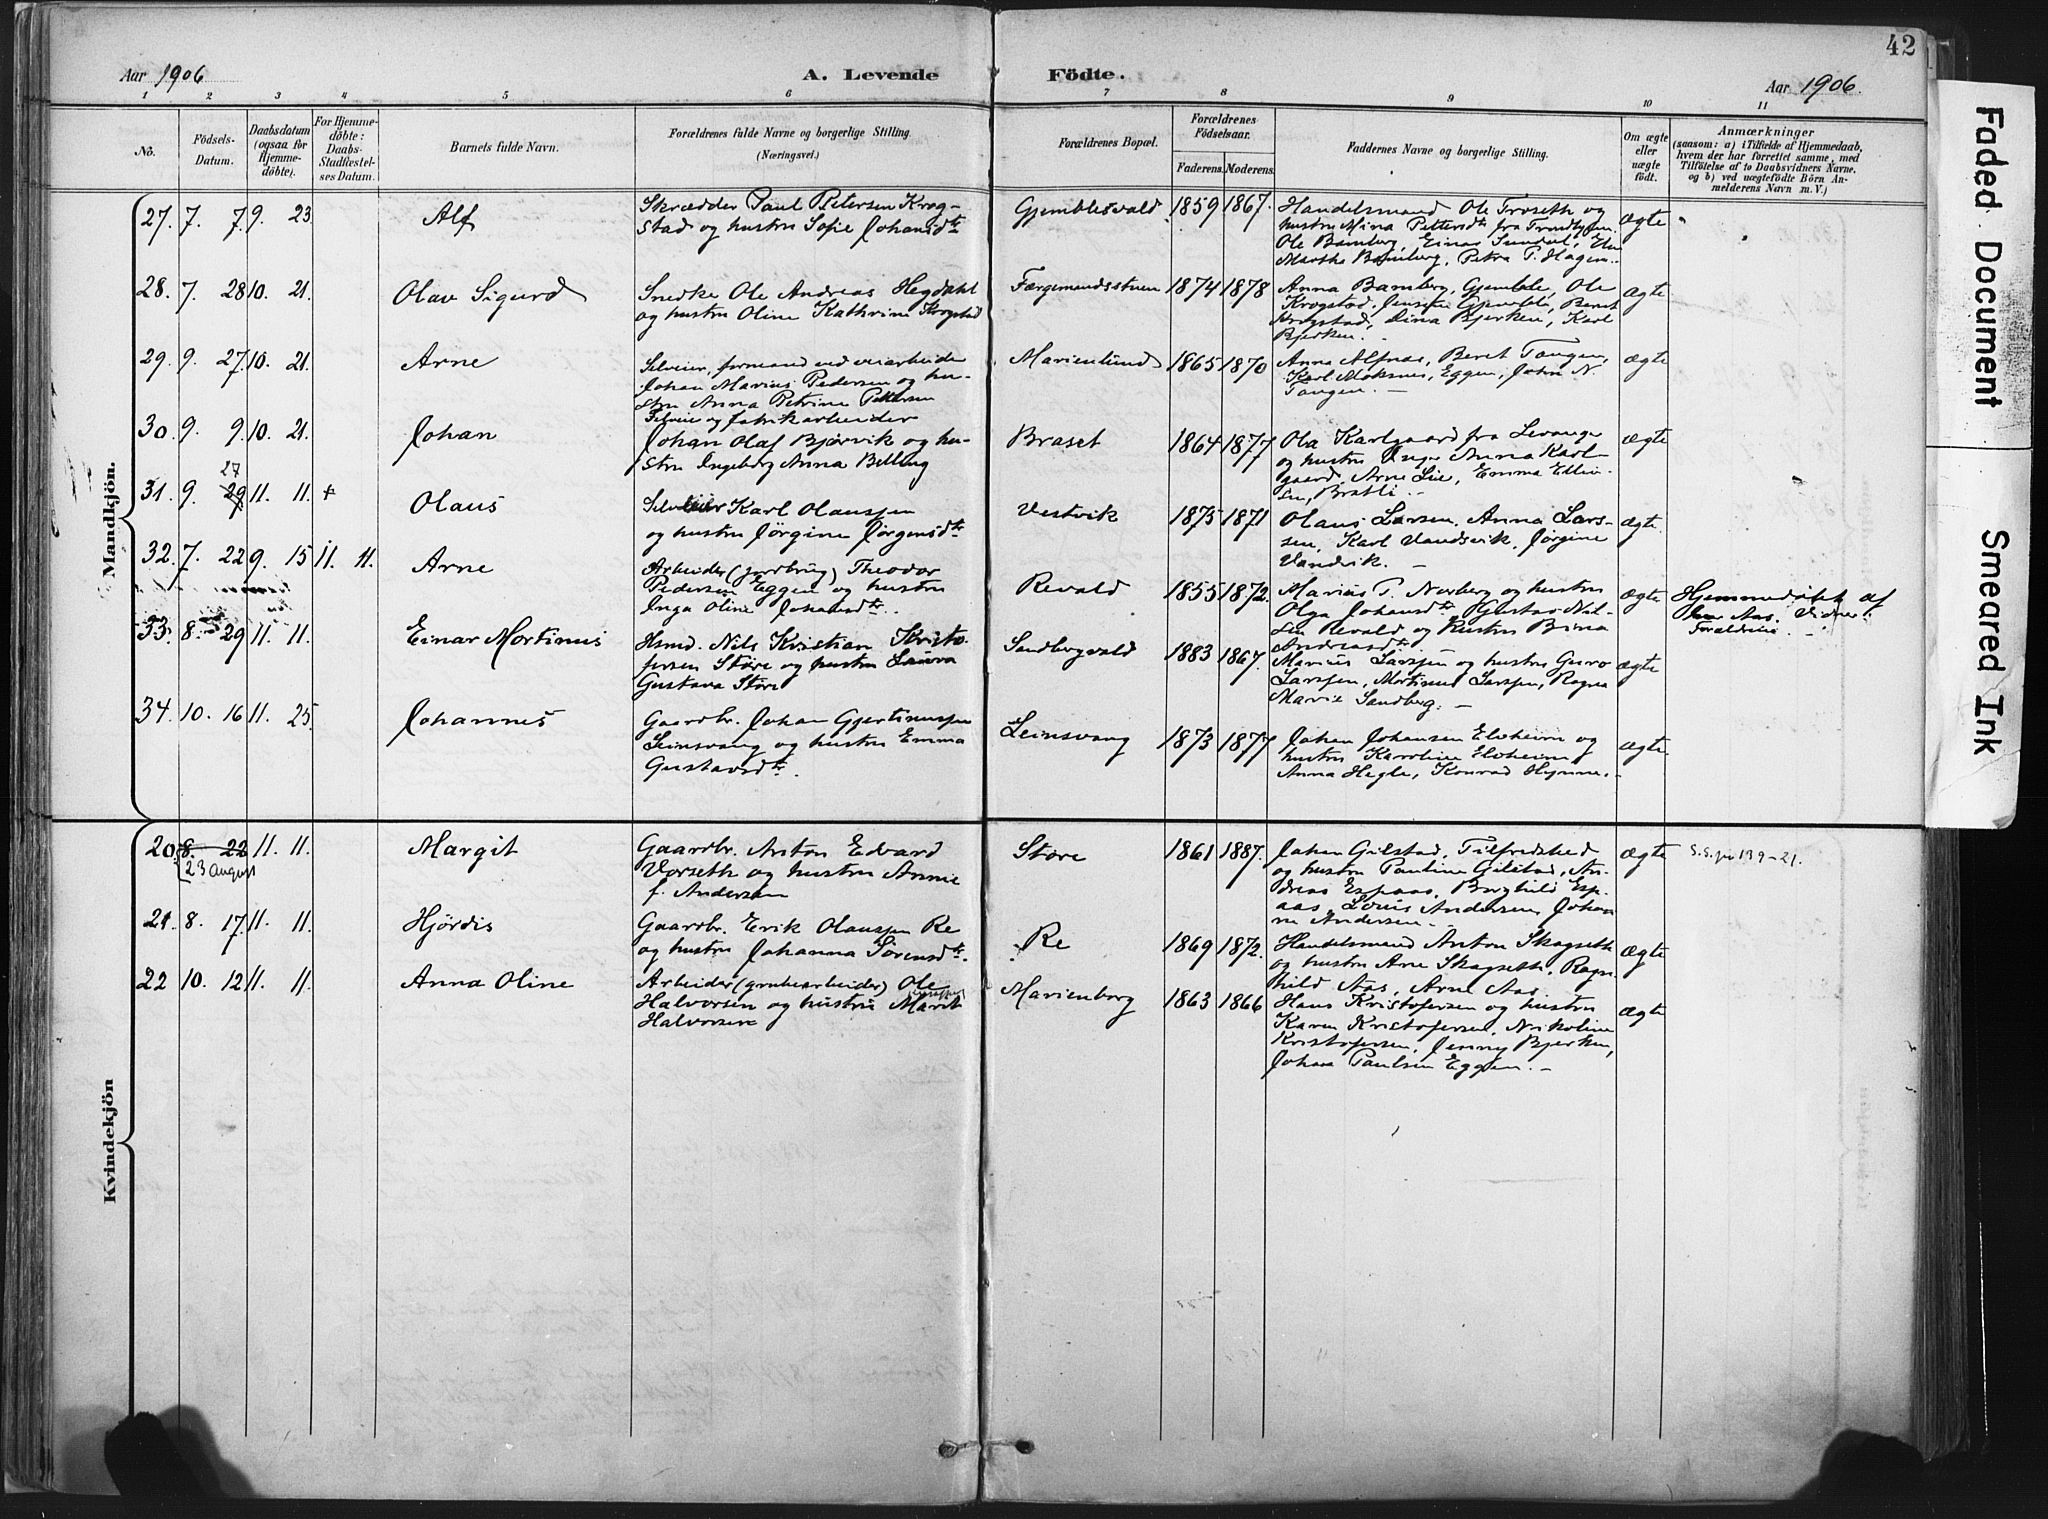 42
Aar 1906
A. Levende
Födte.
Aar 1906.
1 2 3 4 5 6 7 8 9 10 11
No.
Födsels-
Datum.
Daabsdatum
(ogsaa for
Hjemme-
döbte).
For Hjemme-
döbte:
Daabs-
Stadfæstel-
ses Datum.
Barnets fulde Navn.
Forældrenes fulde Navne og borgerlige Stilling
(Næringsvei.)
Forældrenes Bopæl.
Forældrenes
Födselsaar.
Faderens. Moderens.
Faddernes Navne og borgerlige Stilling.
Om ægte
eller
uægte
födt.
Anmærkninger
(saasom: a) i Tilfælde af Hjemmedaab,
hvem der har forrettet samme, med
Tilföielse af to Daabsvidners Navne,
og b) ved uægtefödte Börn An-
melderens Navn m. V.)
Mandkjön.
27. 7. 7. 9. 23. Alf
Skrædder Paul Petersen Krog-
stad og hustru Sofie Johansdtr
Gjemblesvald 1859 1867.
Handelsmand Ole Troseth og
hustru Mina Pettersdtr fra Trondhjem.
Ole Bamberg, Einar Sundal,
Martha Bamberg, Petra P. Hagen.
ægte
28. 7. 28 10. 21. Olav Sigurd
Snedke Ole Andreas Hegdahl
og hustru Oline Kathrine Krogstad
Færgemandsstuen 1874 1878
Anna Bamberg, Gjemble, Ole
Krogstad, Jensine Gjemble, Beret
Krogstad, Dina Bjerken, Karl
Bjerken.
ægte
29. 9. 27. 10. 21. Arne
Selveier, formand ved veiarbeider
Johan Marius Pedersen og hu-
stru Anna Petrine Pettersen
Marienlund 1865 1870
Anna Alfnæs, Beret Tangen,
Karl Moksnes, Eggen, John N.
Tangen. —
ægte
30. 9. 9. 10. 21. Johan
Selveie og fabrikarbeider
Johan Olaf Bjørvik og hu-
stru Ingeborg Anna Belling
Braset 1864 1877
Ola Karlgaard fra Levanger
og hustru Inger Anna Karl-
gaard, Arne Lie, Emma Ellin-
sen, Bratli. —
ægte
27
31. 9. 29 11. 11. + Olaus
Selveier Karl Olaussen
og hustru Jørgine Jørgensdtr
Vestvik 1875 1871
Olaus Larsen, Anna Lars-
sen, Karl Vandsvik, Jørgine
Vandvik. —
ægte.
32. 7. 22 9. 15 11. 11. Arne
Arbeider (jordbrug) Theodor
Pedersen Eggen og hustru
Inga Oline Johansdtr.
Revald 1855 1872.
Marius P. Norberg og hustru
Olga Johansdtr Gustav Nil-
sen Revald og hustru Bina
Andreasdtr.
ægte
Hjemmedøbt af
Aas. Vidner:
Forældrene.
33. 8. 29 11. 11. Einar Mortinus
Hsmd. Nils Kristian Kristo-
fersen Støre og hustru Laura
Gustava Støre
Sandbergvald 1883 1867.
Marius Larssen og hustru Guro
Larssen, Mortinus Larssen, Ragna
Marie Sandberg. —
ægte
34. 10. 16 11. 25. Johannes
Gaardbr. Johan Gjertinussen
Leinsvang og hustru Emma
Gustavsdtr.
Leinsvang 1873 1877
Johan Johansen Elveheim og
hustru Karoline Elveheim,
Anna Hegle, Konrad Hynne. —
ægte
Kvindekjön
20 8. 22 11. 11. Margit
23 August
Gaardbr. Anton Edvard
Vorseth og hustru Annie
f. Andersen
Støre 1861 1887.
Johan Gilstad, Tilfredshed
og hustru Pauline Gilstad, An-
dreas Espaas, Borghild Esp-
aas, Louis Andersen, Johan-
ne Andersen. —
ægte
21. 8. 17. 11. 11. Hjørdis
Gaardbr. Erik Olaussen Re
og hustru Johanna Sørensdtr.
Re 1869 1872.
Handelsmand Anton Skogseth
og hustru Arne Skogseth, Ragn-
hild Aas, Arne Aas
ægte
22 10. 12 11. 11. Anna Oline
Arbeider (grubearbeider) Ole
Halvorsen og hustru Marit
Halvorsen
Marienborg 1863 1866
Hans Kristofersen og hustru
Karen Kristofersen, Nikoline
Kristofersen, Jenny Bjerken,
Johan Paulsen Eggen. —
ægte
Faded Document
Smeared Ink